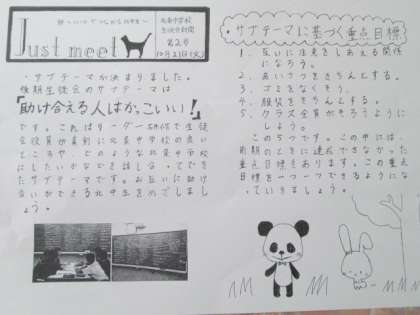 Just meet
北泰中学校
生徒会新聞
第2号
10月21日(火)
・サブテーマが決まりました。
後期生徒会のサブテーマは
「助け合える人はかっこいい!」
です。これはリーダー研修で生徒
会役員が真剣に北泰中学校の良い
ところや、どのような北泰中学校
にしたいかなどを話し合ってでき
たサブテーマです。お互いに助け
合いができる北中生をめざしまし
ょう。
サブテーマに基づく重点目標
1. 互いに注意をしあえる関係
になろう。
2. あいさつをきちんとする。
3. ゴミをなくそう。
4. 服装をきちんとする。
5. クラス全員がそろうように
しよう。
この5つです。この中には、
前期のときに達成できなかった
重点目標もあります。この重点
目標を一つ一つできるようにな
っていきましょう。